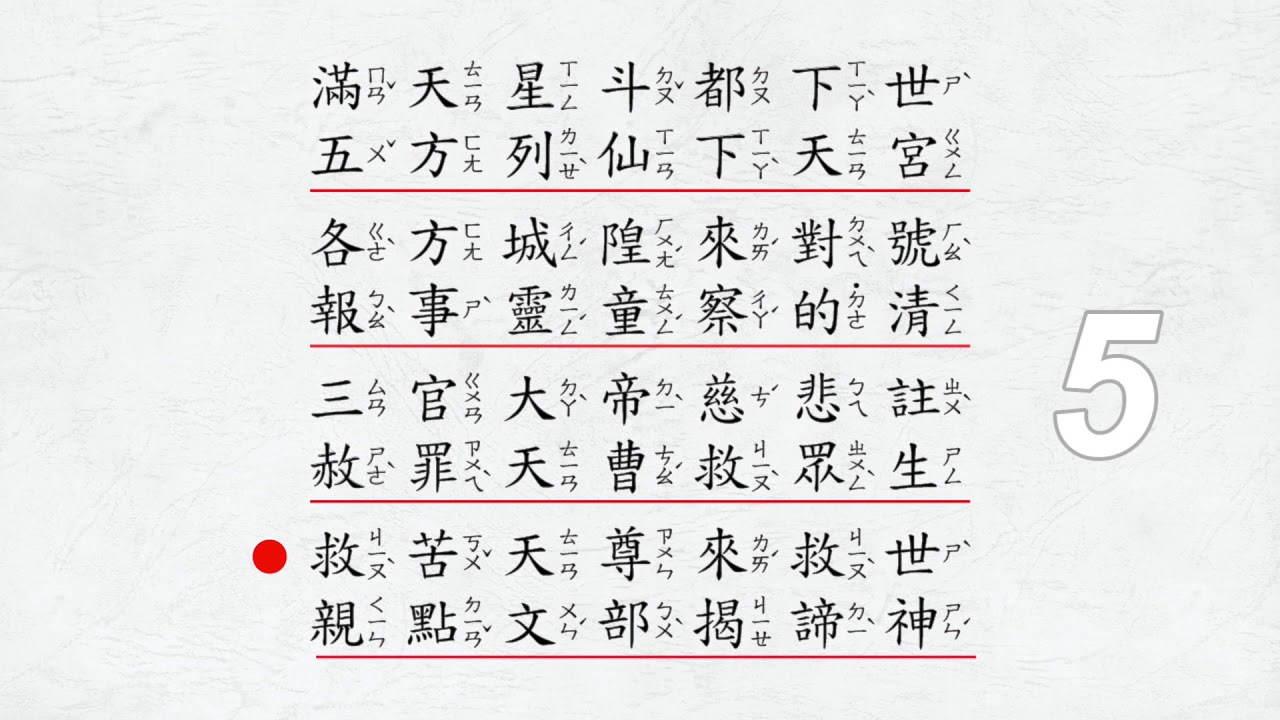 滿ㄇㄢˇ天ㄊㄧㄢ星ㄒㄧㄥ斗ㄉㄡˇ都ㄉㄡ下ㄒㄧㄚˋ世ㄕˋ
五ㄨˇ方ㄈㄤ列ㄌㄧㄝˋ仙ㄒㄧㄢ下ㄒㄧㄚˋ天ㄊㄧㄢ宮ㄍㄨㄥ
各ㄍㄜˋ方ㄈㄤ城ㄔㄥˊ隍ㄏㄨㄤˊ來ㄌㄞˊ對ㄉㄨㄟˋ號ㄏㄠˋ
報ㄅㄠˋ事ㄕˋ靈ㄌㄧㄥˊ童ㄊㄨㄥˊ察ㄔㄚˊ的˙ㄉㄜ清ㄑㄧㄥ
三ㄙㄢ官ㄍㄨㄢ大ㄉㄚˋ帝ㄉㄧˋ慈ㄘˊ悲ㄅㄟ註ㄓㄨˋ
赦ㄕㄜˋ罪ㄗㄨㄟˋ天ㄊㄧㄢ曹ㄘㄠˊ救ㄐㄧㄡˋ眾ㄓㄨㄥˋ生ㄕㄥ
救ㄐㄧㄡˋ苦ㄎㄨˇ天ㄊㄧㄢ尊ㄗㄨㄣ來ㄌㄞˊ救ㄐㄧㄡˋ世ㄕˋ
親ㄑㄧㄣ點ㄉㄧㄢˇ文ㄨㄣˊ部ㄅㄨˋ揭ㄐㄧㄝ諦ㄉㄧˋ神ㄕㄣˊ
5